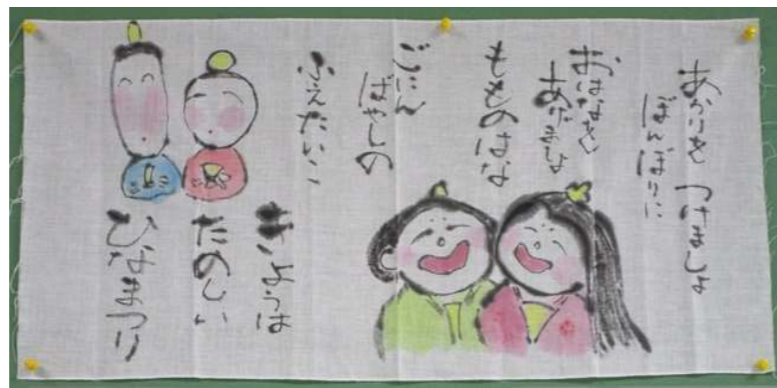 あかりを つけましょ
ぼんぼりに
おはなを
あげましょ
もものはな
ごにん
ばやしの
ふえたいこ
きょうは
たのしい
ひなまつり